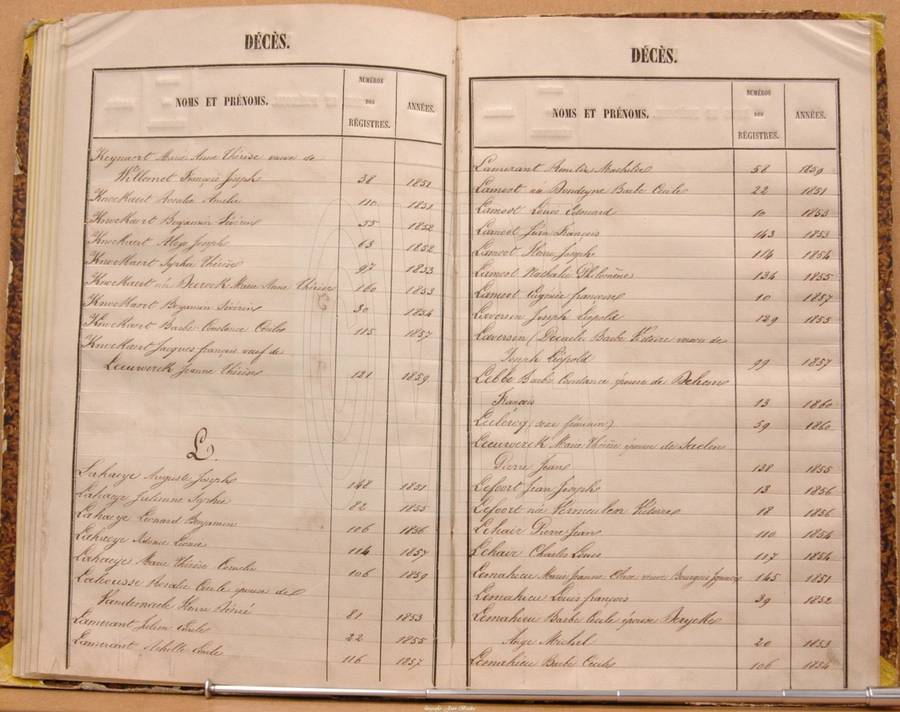 DÉCÈS.
NOMS ET PRÉNOMS. NUMÉROS DES RÉGISTRES. ANNÉES.
Keynaert Marie Anne Thérèse veuve de
Willemet François Joseph 38 1851
Knockaert Rosalie Amelie 110 1851
Knockaert Benjamin Séverin 55 1852
Knockaert Joseph 63 1852
Knockaert Sophie Thérèse 97 1853
Knockaert née Marie Anne Thérèse 160 1853
Knockaert Benjamin Séverin 30 1854
Knockaert Barbe Constance 115 1857
Knockaert Jacques françois veuf de
Leeuwerck Jeanne Thérèse 121 1859
L.
Lahaeye Auguste Joseph 148 1851
Lahaeye Julienne Sophie 82 1855
Lahaeye Léonard Benjamin 106 1856
Lahaeye 114 1857
Lahaeye Marie Thérèse Cornelie 106 1859
Lahousse Rosalie Cecile épouse de
Henri 81 1853
Lamerant Julien 22 1855
Lamerant Achille 116 1857
DÉCÈS.
NOMS ET PRÉNOMS. NUMÉROS DES RÉGISTRES. ANNÉES.
Lamerant Mathilde 58 1859
Lamoot née Barbe Cecile 22 1851
Lamoot Louis Edouard 10 1853
Lamoot Jean François 143 1853
Lamoot Joseph 114 1854
Lamoot Nathalie Philomène 134 1855
Lamoot Eugénie françoise 10 1857
Laversin Joseph Léopold 129 1853
Laversin Barbe Victoire veuve de
Joseph Léopold 99 1857
Lebbe Barbe Constance épouse de
François 13 1860
Leclercq (sexe féminin) 59 1860
Leeuwerck Marie Thérèse épouse de
Pierre Jean 138 1855
Lefoort Jean Joseph 13 1856
Lefoort née Vermeulen Victoire 18 1856
Lehair Pierre Jean 110 1854
Lehair Charles Louis 117 1854
Lemahieu Marie Jeanne Clara veuve Bourgois 145 1851
Lemahieu Louis françois 39 1852
Lemahieu Barbe Cecile épouse
Ange Michel 20 1853
Lemahieu Barbe Cecile 106 1854